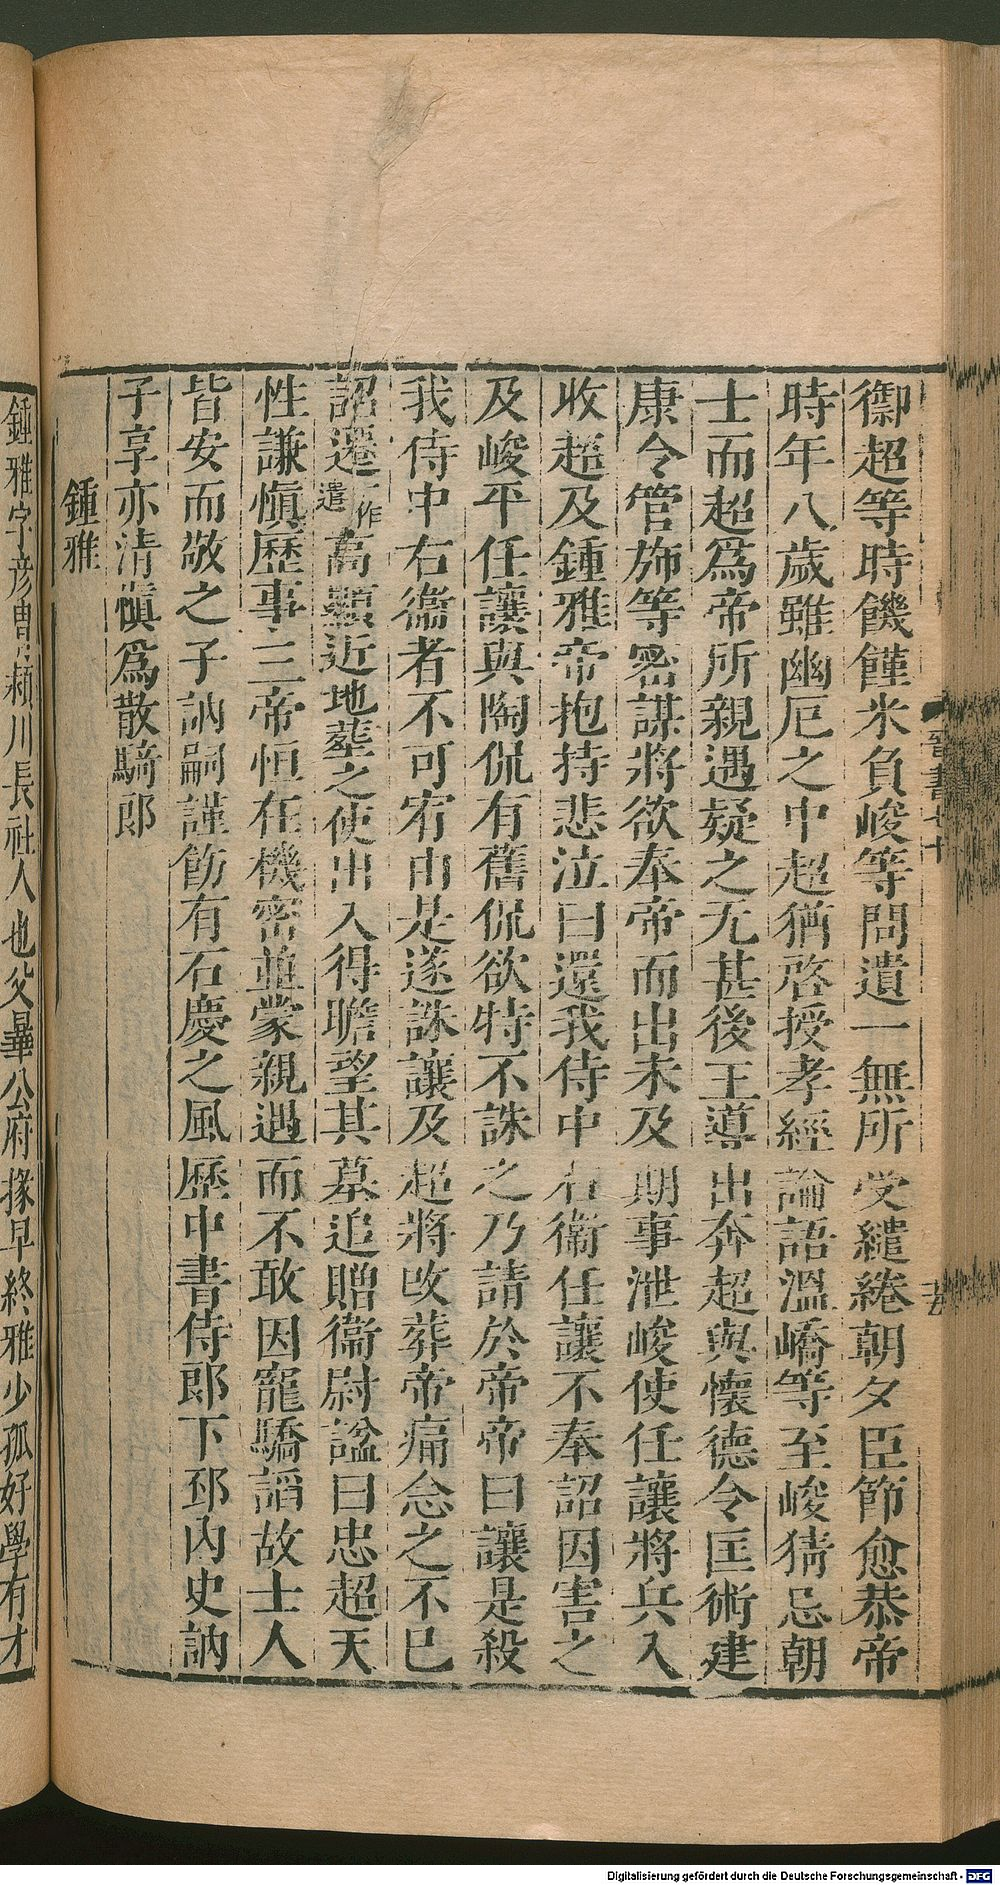 御超等時饑饉米負峻等問遺一無所受繾綣朝夕臣節愈恭帝
時年八歲雖幽厄之中超猶啓授孝經論語溫嶠等至峻猜忌朝
士而超爲帝所親遇疑之尤甚後王導出奔超與懷德令匡術建
康令管斾等密謀將欲奉帝而出未及期事泄峻使任讓將兵入
收超及鍾雅帝抱持悲泣曰還我侍中右衞任讓不奉詔因害之
及峻平任讓與陶侃有舊侃欲特不誅之乃請於帝帝曰讓是殺
我侍中右衞者不可宥由是遂誅讓及超將改葬帝痛念之不已
詔遷一作遣高顯近地葬之使出入得瞻望其墓追贈衞尉諡曰忠超天
性謙愼歷事三帝恒在機密並蒙親遇而不敢因寵驕諂故士人
皆安而敬之子訥嗣謹飭有石慶之風歷中書侍郎下邳內史訥
子享亦清愼爲散騎郎
鍾雅
鍾雅字彥冑潁川長社人也父曄公府掾早終雅少孤好學有才
晉書七十
Digitalisierung gefördert durch die Deutsche Forschungsgemeinschaft - DFG